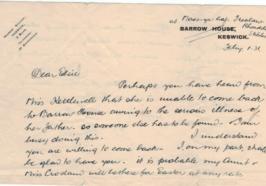 BARROW HOUSE,
KESWICK.
Dear Elsie
Perhaps you have heard from
Miss that she is unable to come back
to Barrow House owing to the serious illness of
her father. So someone else has to be found. I am
busy doing this. I understand
you are willing to come back. I on my part shall
be glad to have you. it is probable my Aunt &
Miss will be here for Easter at any rate